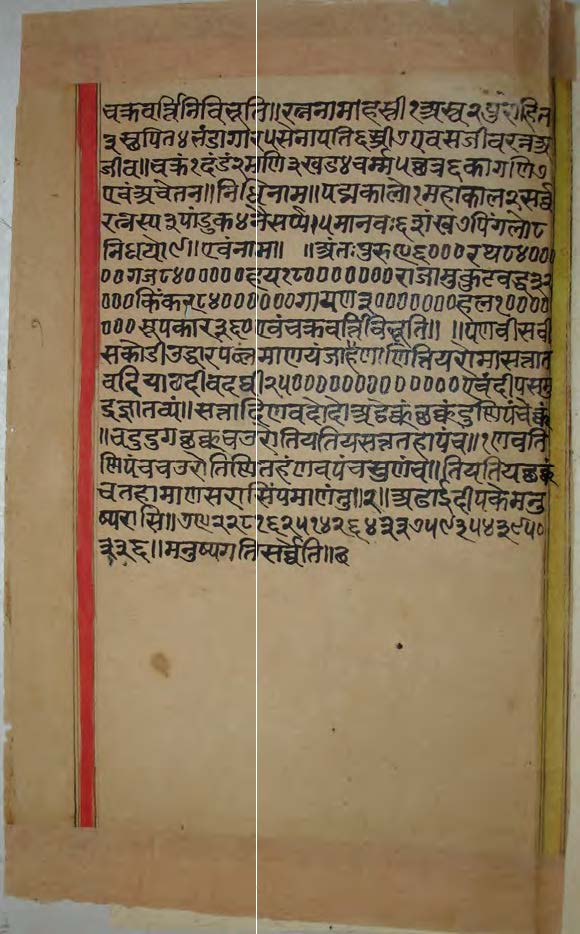 चक्रवर्त्तिनिविभूति॥रत्ननामाहस्ती१अस्व२पुरोहित
३स्छपित४भंडागोर५सेनापति६स्त्री७एवसजीवरत्नअ
जीव॥चक्रं१दंडं२मणि३खड४चर्म्म५छत्र६कागणि७
एवंअचेतन॥निधिनाम॥पद्मकालो१महाकाल२सर्व्व
रत्नस्प३पांडुक४नेसर्प्प५मानवः६शंख७पिंगलो८
निधयो९॥एवंनाम॥ ॥अंतःपुरु९६०००रथ८४०००
००गज८४०००००हय१८०००००००राजामुकुटवद्ध३२
०००किंकर८४००००००गायण३०००००००हल१००००
०००सूपकार३६०एवंचक्रवर्त्तिविभूति॥ ॥पणवीसवी
सकोडीउद्दारपल्लमाणयंजा
वदियाछदीवदधी२५००००००००००००००एवंदीपसमु
द्रज्ञातव्यं॥सन्नादिणवदोदोअडेक्कंछक्कंदुणिपंचेक्कं
॥चदुदुगछक्कचउरोतियतियसन्नतहापंच॥१णवति
णिपंचचउरोतिणितहंणवपंचसुणंच॥तियतियछक्कं
चतहामाणसरासिंपमाणंतु॥२॥अढाईदीपकेमनु
ष्यरासि॥७९२२८१६२५१४२६४३३७५९३५४३९५०
३३६॥मनुष्यगति